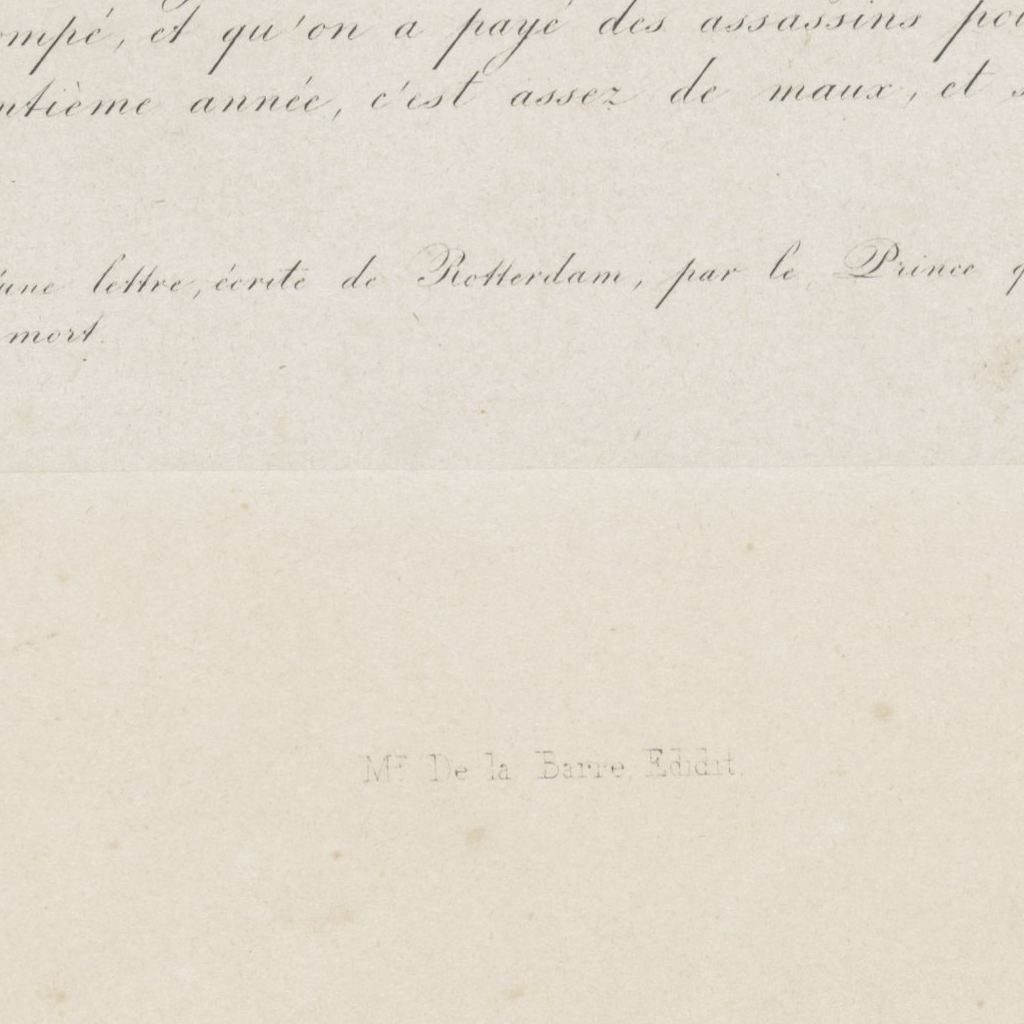 ompé, et qu'on a payé des assassins pou
ntième année, c'est assez de maux, et s
'une lettre, écrite de Rotterdam, par le Prince q
mort.
Mr. De la Barre, Edidit.